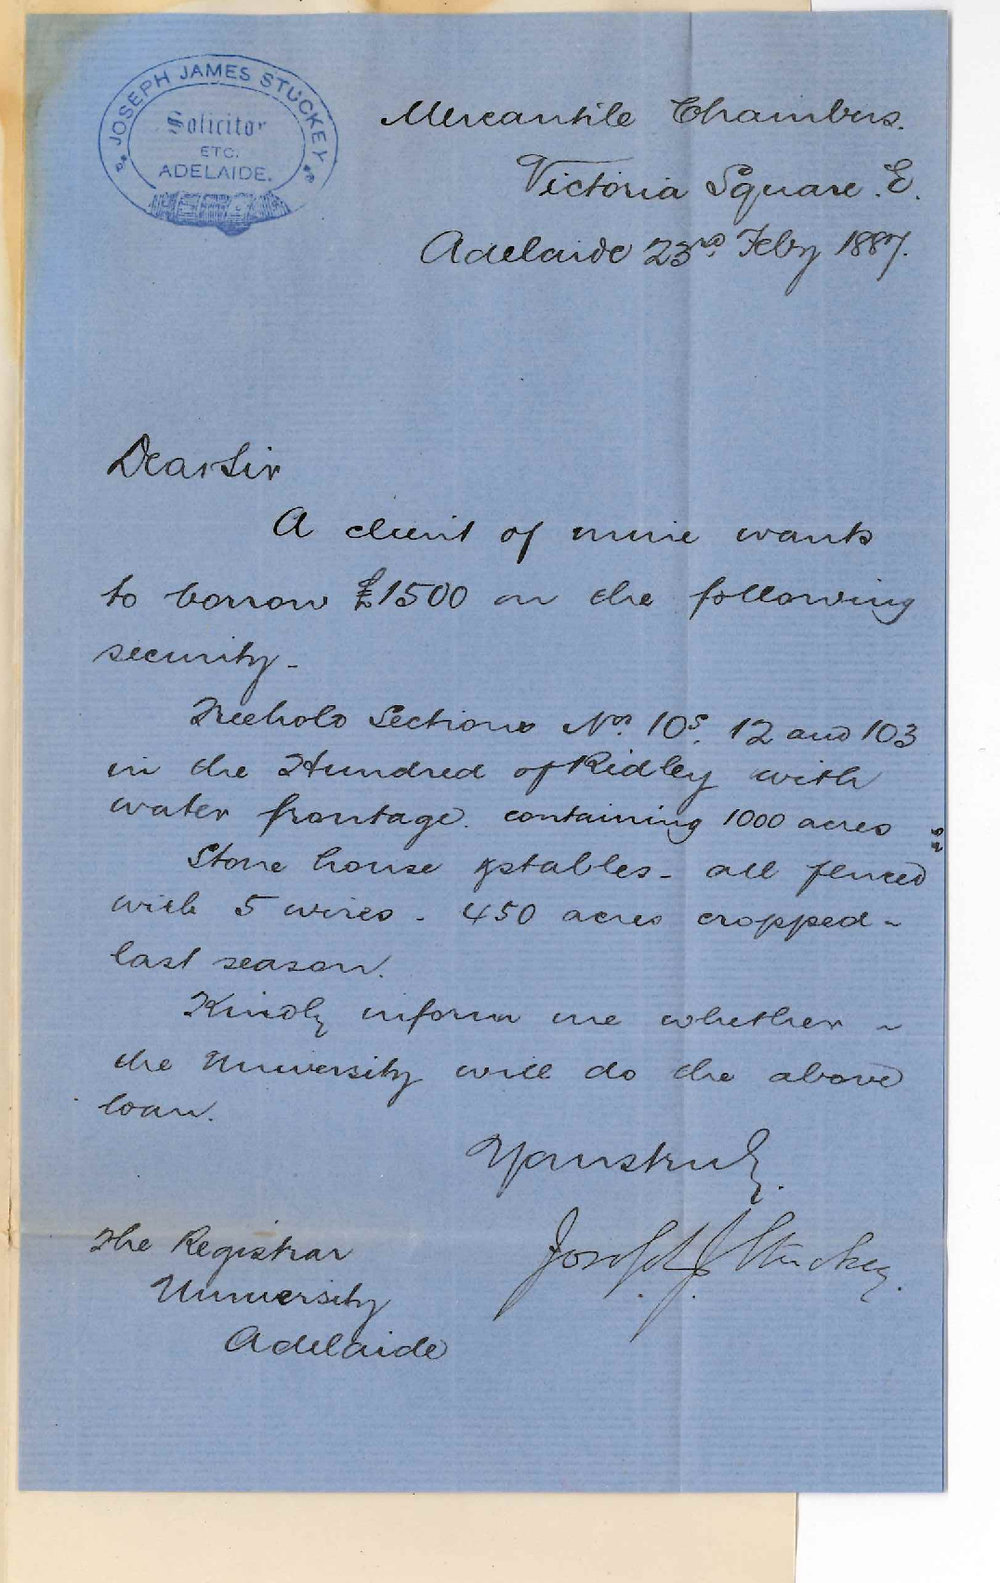 JOSEPH JAMES STUCKEY
Solicitor
ETC.
ADELAIDE.
Mercantile Chambers.
Victoria Square. E.
Adelaide 23rd Feby 1887.
Dear Sir
A client of mine wants
to borrow £1500 on the following
security -
Freehold Sections Nos. 10s. 12 and 103
in the Hundred of Ridley with
water frontage. containing 1000 acres
Stone house & stables - all fenced
with 5 wires - 450 acres cropped -
last season.
Kindly inform me whether -
the University will do the above
loan.
Yours truly.
Joseph J. Stuckey.
The Registrar
University
Adelaide